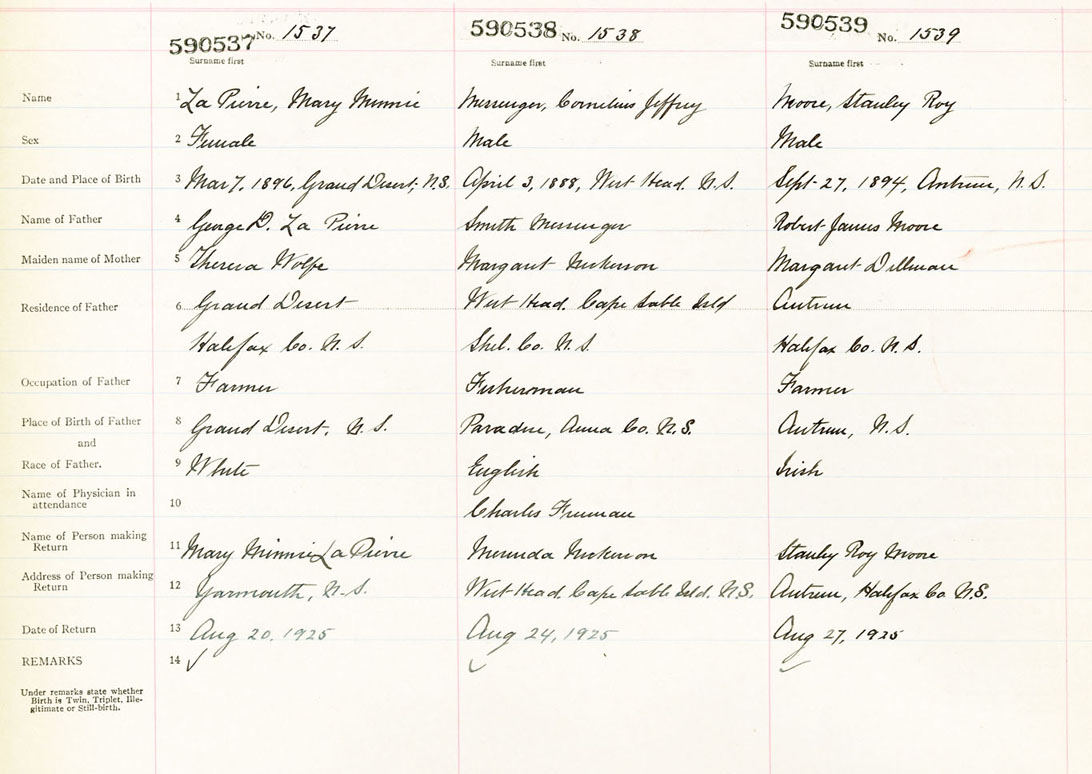 590537 No. 1537 590538 No. 1538 590539 No. 1539
Surname first Surname first Surname first
Name 1 La Pierre, Mary Minnie Messenger, Cornelius Jeffrey Moore, Stanley Roy
Sex 2 Female Male Male
Date and Place of Birth 3 Mar 7, 1896, Grand Desert, N.S. April 3, 1888, West Head. N.S. Sept. 27, 1894, Antrim, N.S.
Name of Father 4 George D. La Pierre Smith Messenger Robert James Moore
Maiden name of Mother 5 Theresa Wolfe Margaret Nickerson Margaret Dillman
Residence of Father 6 Grand Desert West Head. Cape Sable Isld Antrim
Halifax Co. N.S. Shel. Co. N.S. Halifax Co. N.S.
Occupation of Father 7 Farmer Fisherman Farmer
Place of Birth of Father 8 Grand Desert, N.S. Paradise, Anna Co. N.S. Antrim, N.S.
and
Race of Father. 9 White English Irish
Name of Physician in
attendance 10 Charles Freeman
Name of Person making
Return 11 Mary Minnie La Pierre Merinda Nickerson Stanley Roy Moore
Address of Person making
Return 12 Yarmouth, N.S. West Head. Cape Sable Isld. N.S. Antrim, Halifax Co N.S.
Date of Return 13 Aug 20, 1925 Aug 24, 1925 Aug 27, 1925
REMARKS 14 ✓ ✓ ✓
Under remarks state whether
Birth is Twin, Triplet, Ille-
gitimate or Still-birth.